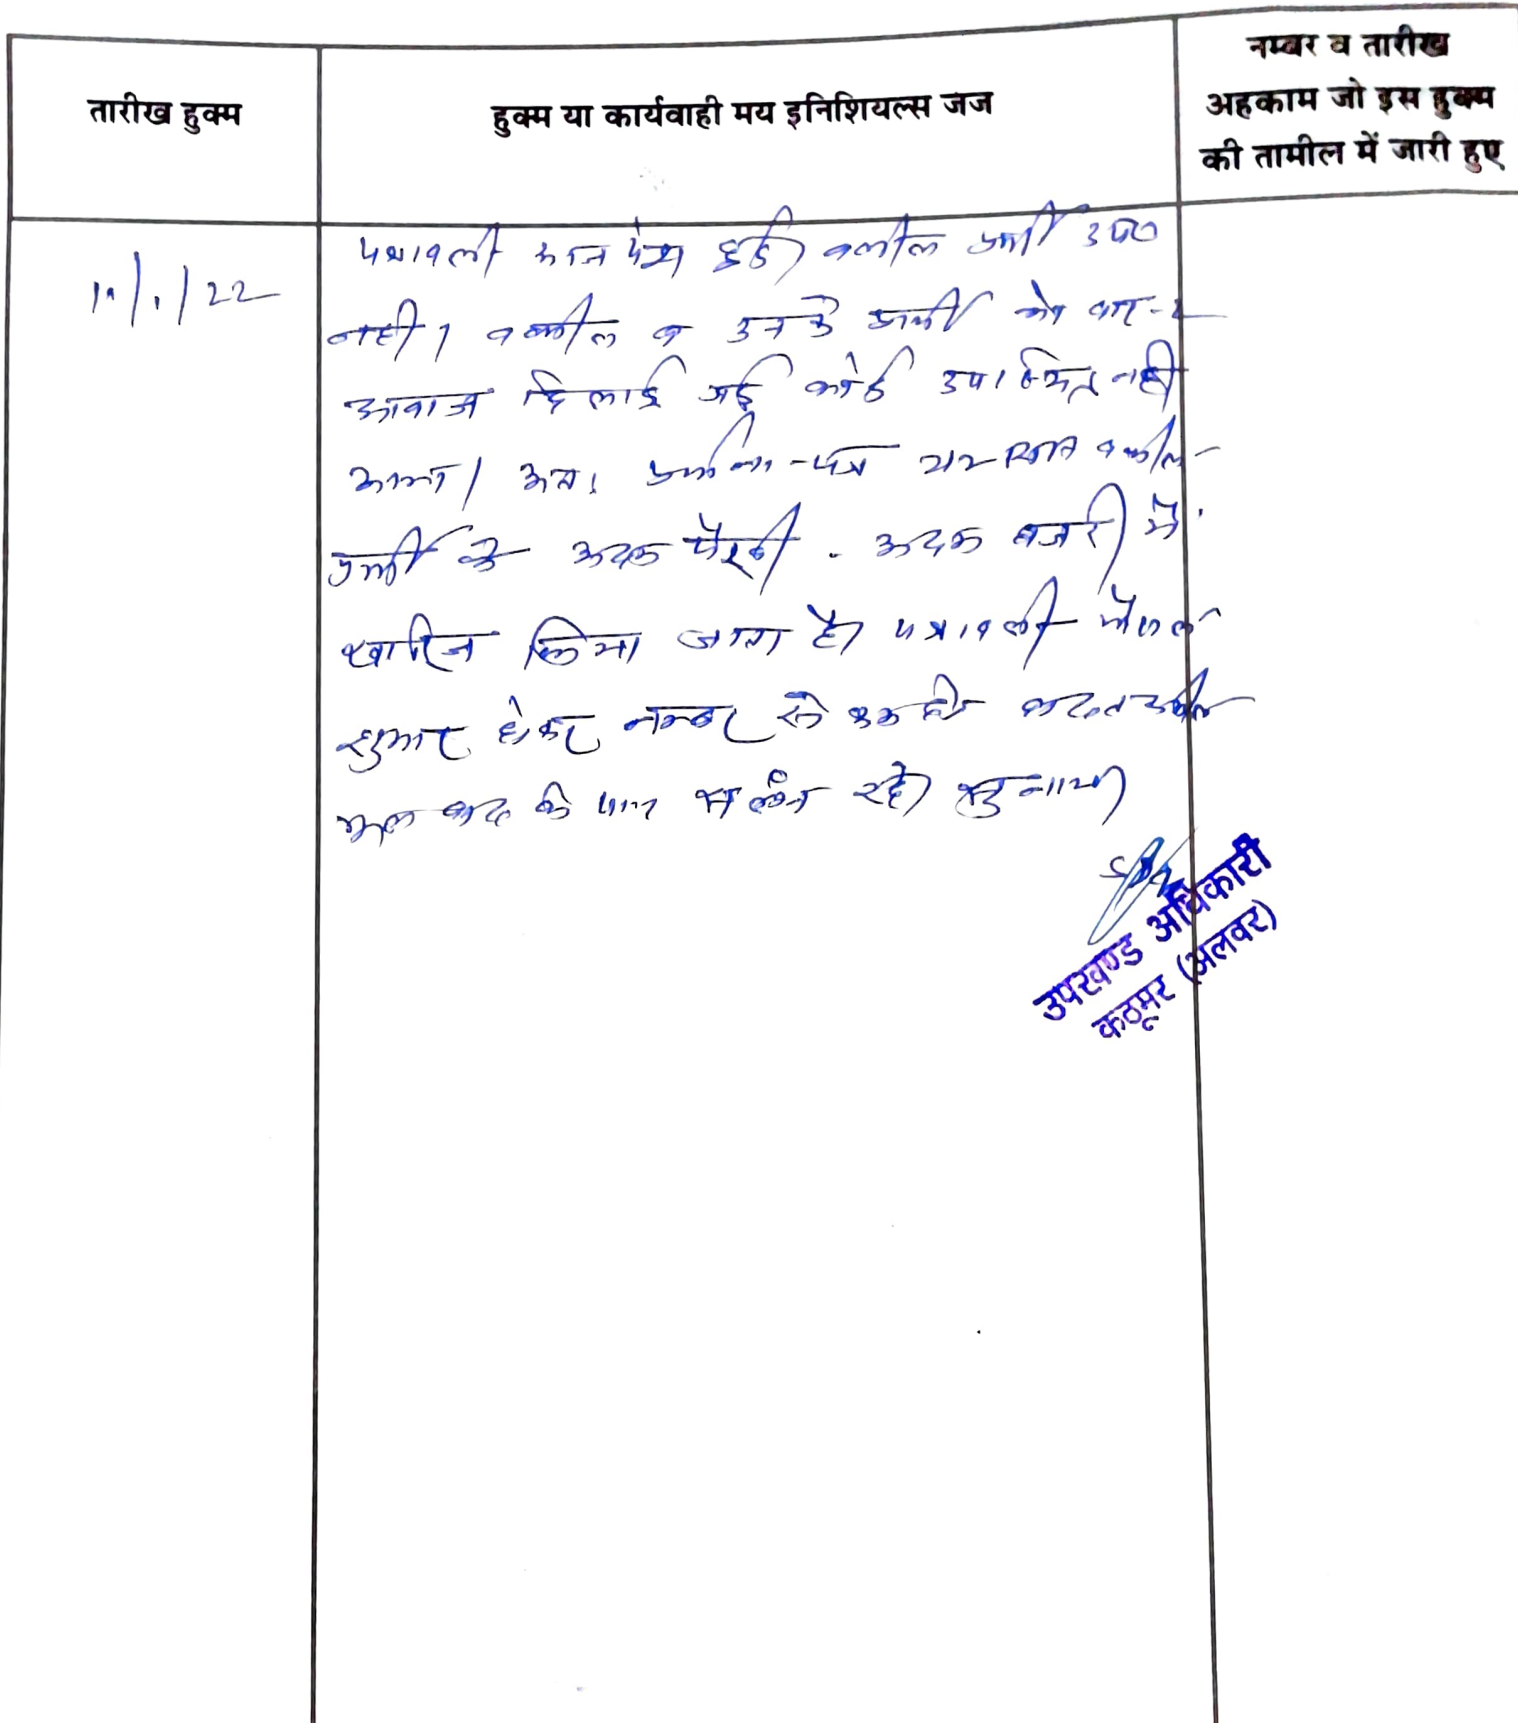 नम्बर व तारीख
तारीख हुक्म
हुक्म या कार्यवाही मय इनिशियल्स जज
अहकाम जो इस हुक्म
की तामील में जारी हुए
पत्रावली आज पेश हुई। वकील प्रार्थी उप०
नहीं। वकील व उनके प्रार्थी को बार-२
आवाज दिलाई गई कोई उपस्थित नही
आया। अतः प्रार्थना-पत्र वकील
प्रार्थी के अदम पैरवी - अदम हाजरी में
खारिज किया जाता है। पत्रावली फैसल
शुमार होकर नम्बर से कम हो
मूल वाद के साथ संलग्न रहे।
उपखण्ड अधिकारी
कठूमर (अलवर)